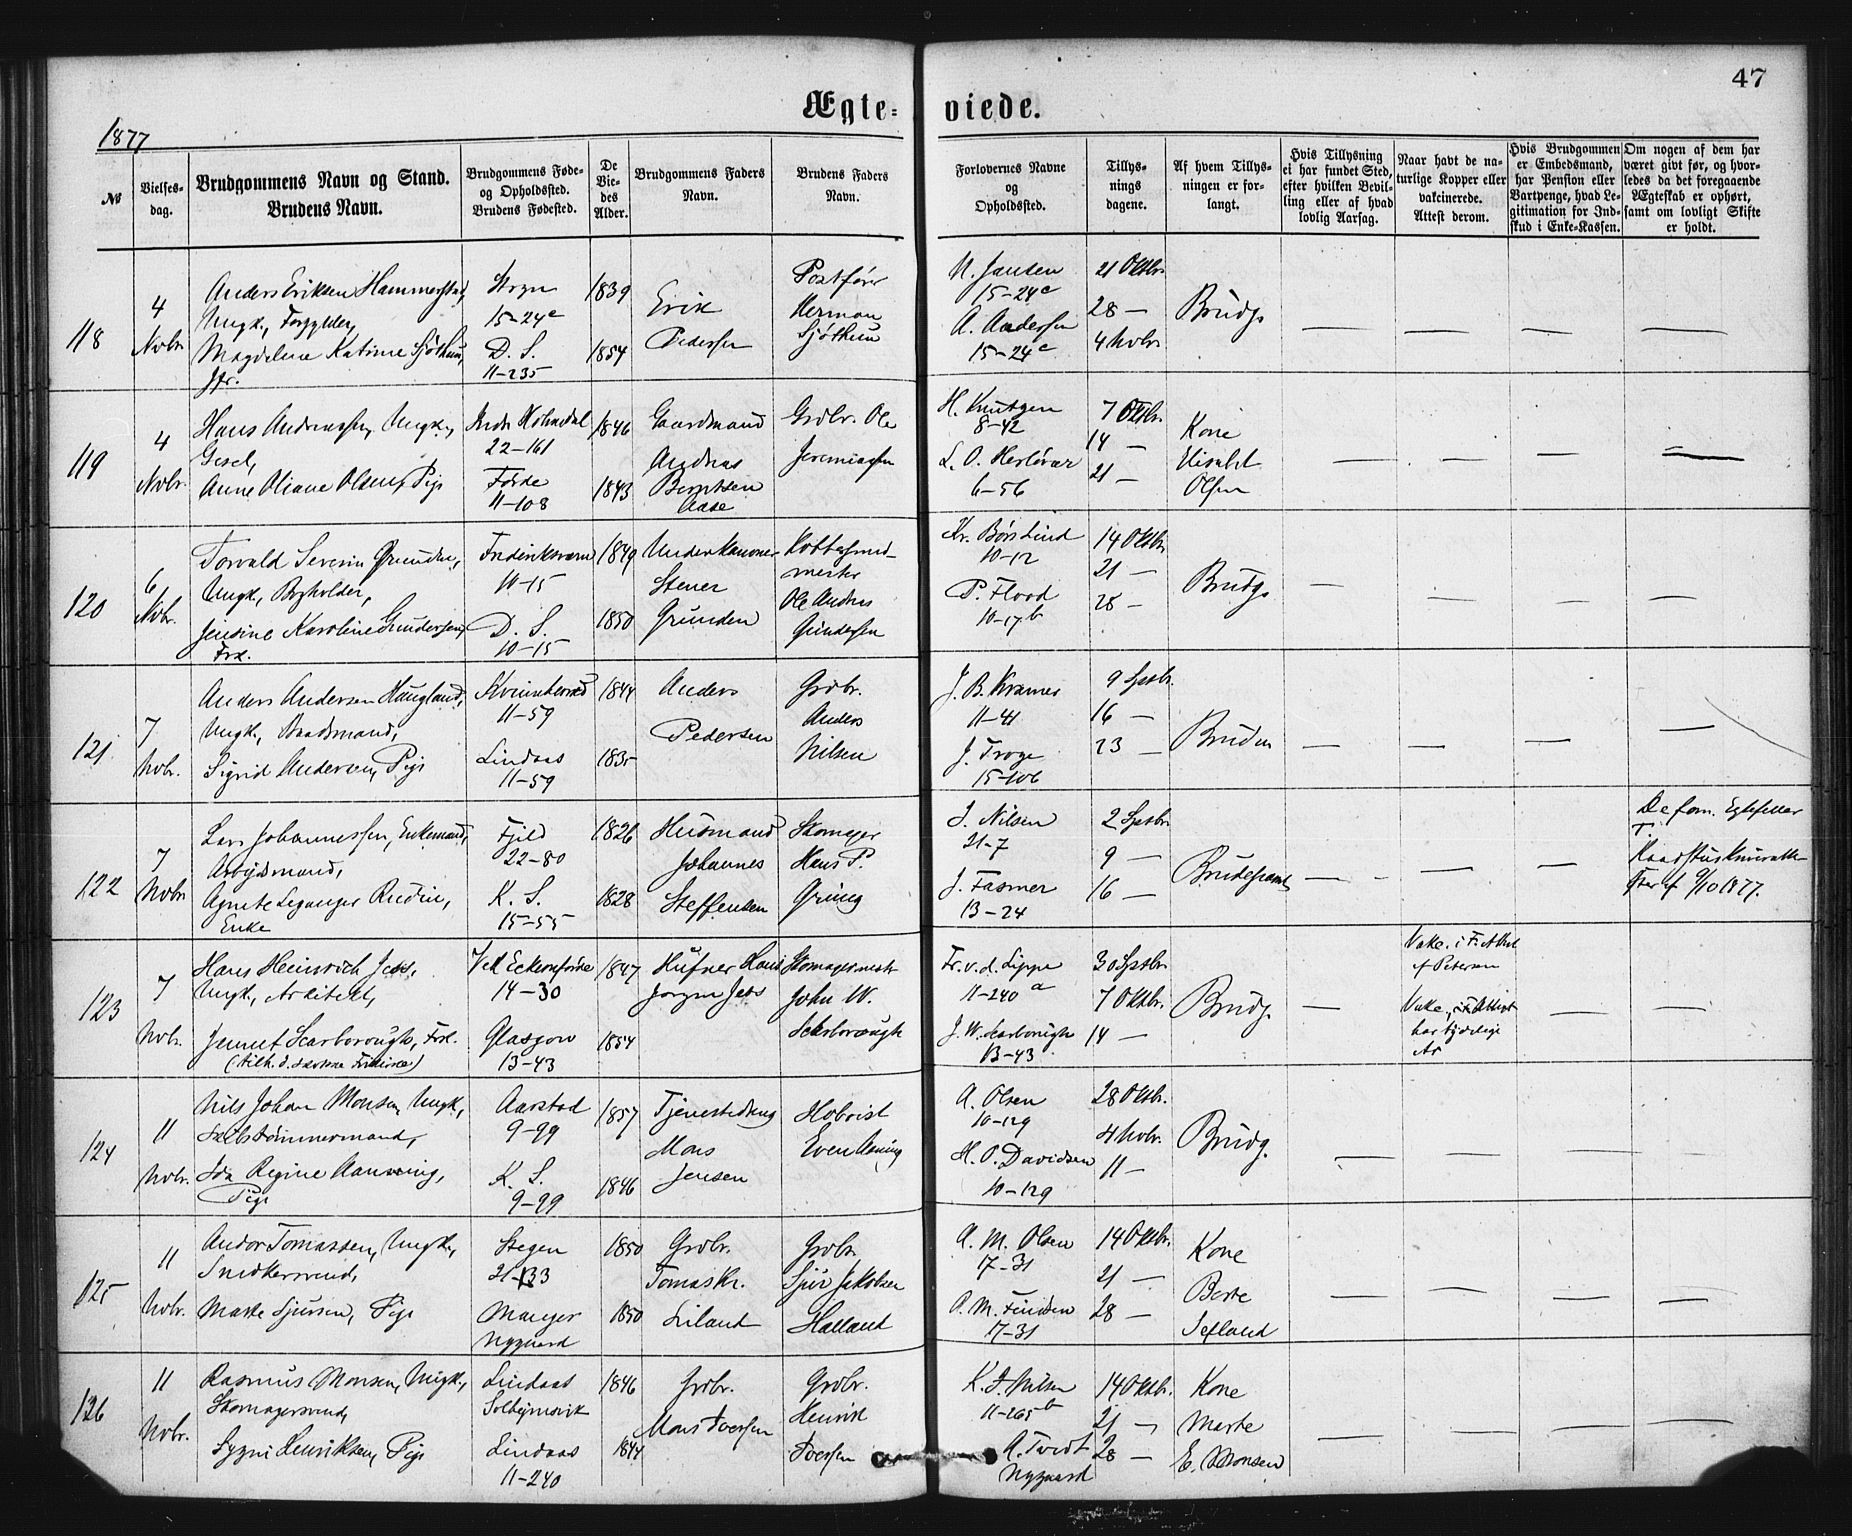 47
Ægte= viede.
1877
No
Vielses-
dag.
Brudgommens Navn og Stand.
Brudens Navn.
Brudgommens Føde-
og Opholdssted.
Brudens Fødested.
De
Vie-
des
Alder.
Brudgommens Faders
Navn.
Brudens Faders
Navn.
Forlovernes Navne
og
Opholdssted.
Tillys-
nings
dagene.
Af hvem Tillys-
ningen er for-
langt.
Hvis Tillysning
ei har fundet Sted,
efter hvilken Bevil-
ling eller af hvad
lovlig Aarsag.
Naar havt de na-
turlige Kopper eller
vakcinerede.
Attest derom.
Hvis Brudgommen
er Embedsmand,
har Pension eller
Vartpenge, hvad Le-
gitimation for Ind-
skud i Enke-Kassen.
Om nogen af dem har
været givt før, og hvor-
ledes da det foregaaende
Ægteskab er ophørt,
samt om lovligt Skifte
er holdt.
118
4
Nvbr
Anders Eriksen Hammerstad,
Ungk., Forgylder,
Magdelene Katrine Sjøthun,
Jfr.
Stryn
15-24c
D. S.
11-235
1839
1854
Erik
Pedersen
Postfører
Herman
Sjøthun
N. Jansen
15-24c
A. Andersen
15-24c
21 Oktbr.
28 —
4 Nvbr.
Brudg.
119
4
Nvbr.
Hans Andreassen, Ungk.,
Gesel,
Anne Oliane Olsen, Pige
Indr. Holmedal
22-161
Førde
11-108
1846
1843
Gaardmand
Andreas
Berntsen
Aase
Grdbr. Ole
Jeremiassen
H. Knutzen
8-42
L. O. Herlovær
6-56
7 Oktbr.
14 —
21 —
Kone
Elisabet
Olsen
120
6
Nvbr.
Torvald Severin Grunden,
Ungk., Bogholder,
Jensine Karoline Gundersen,
Frk.
Frederiksværn
10-15
D. S.
10-15
1849
1850
Underkanoner
Stener
Grunden
Kobbersmed-
mester
Ole Andreas
Gundersen
Kr. Børslind
10-12
P. Flood
10-17b
14 Oktbr.
21 —
28 —
Brudg.
121
7
Nvbr.
Anders Andersen Haugland,
Ungk., Baadsmand,
Sigrid Andersen, Pige
Kvinnherred
11-59
Lindaas
11-59
1844
1835
Anders
Pedersen
Grdbr.
Anders
Nilsen
J. B. Kramer
11-41
J. Troye
15-106
9 Sptbr.
16 —
23 —
Bruden
122
7
Nvbr
Lars Johannessen, Enkemand,
Arbejdsmand,
Agnete Leganger Rudin,
Enke
Fjeld
22-80
K. S.
15-55
1826
1828
Husmand
Johannes
Steffensen
Skomager
Hans P.
Gruing
J. Nilsen
21-7
J. Fasmer
13-24
2 Sptbr
9 —
16 —
Brudeparret
De forn. Egtefeller
9/10 1877.
123
7
Nvbr.
Hans Heinrich Jess,
Ungk., Arkitekt,
Jennet Scarborough, Frk.
Ved Eckernförde
14-30
Glasgow
13-43
1847
1854
Hufner Hans
Jørgen Jess
Skomagermestr
John W.
Scarborough
Fr. v. d. Lippe
11-240 a
J. W. Scarborough
13-43
30 Sptbr.
7 Oktbr.
14 —
Brudg.
Vakc. i Fl. Attest
af Petersen
Vakc.
124
11
Nvbr.
Nils Johan Monsen, Ungk.,
Skibstømmermand,
Ida Regine Aanning,
Pige
Aarstad
9-99
K. S.
9-99
1857
1846
Tjenestedreng
Mons
Jensen
Hoboist
Even Aaning
A. Olsen
10-129
H. O. Davidsen
10-129
28 Oktbr.
4 Nvbr.
11 —
Brudg.
125
11
Nvbr.
Andor Tomassen, Ungk.,
Snedkersvend,
Marte Sjursen, Pige
Stegen
21-33
Manger
Nygaard
1850
1850
Grdbr.
Tomas Kr.
Liland
Grdbr.
Sjur Jakobsen
Halland
A. M. Olsen
17-31
O. M. Knudsen
17-31
14 Oktbr.
21 —
28 —
Kone
Berte
Sefland
126
11
Nvbr.
Rasmus Monsen, Ungk.,
Skomagersvend,
Sygni Henriksen, Pige
Lindaas
Solhejmsvik
Lindaas
11-240
1846
1844
Grdbr.
Mons Iversen
Grdbr.
Henrik
Iversen
K. J. Nilsen
11-265b
A. Tvedt
Nygaard
14 Oktbr.
21 —
28 —
Kone
Marte
E. Monsen